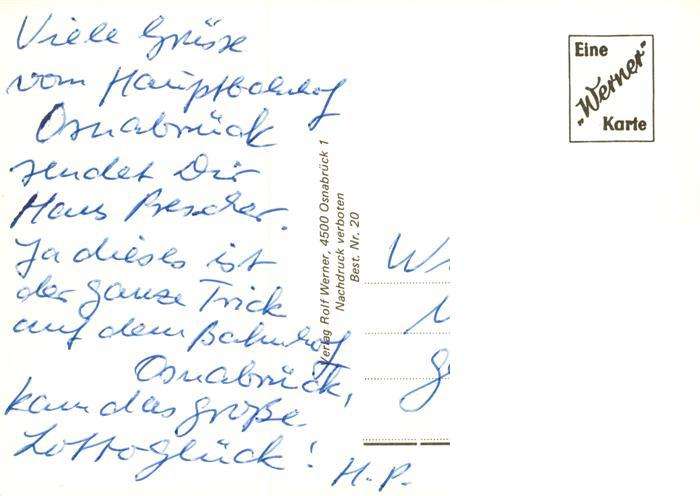 Viele Grüsse
vom Hauptbahnhof
Osnabrück
sendet Dir
Hans Prescher.
Ja dieses ist
der ganze Trick
auf dem Bahnhof
Osnabrück,
kam das große
Lottoglück!
H.P.
Verlag Rolf Werner, 4500 Osnabrück 1
Nachdruck verboten
Best. Nr. 20
Eine
„Werner"
Karte